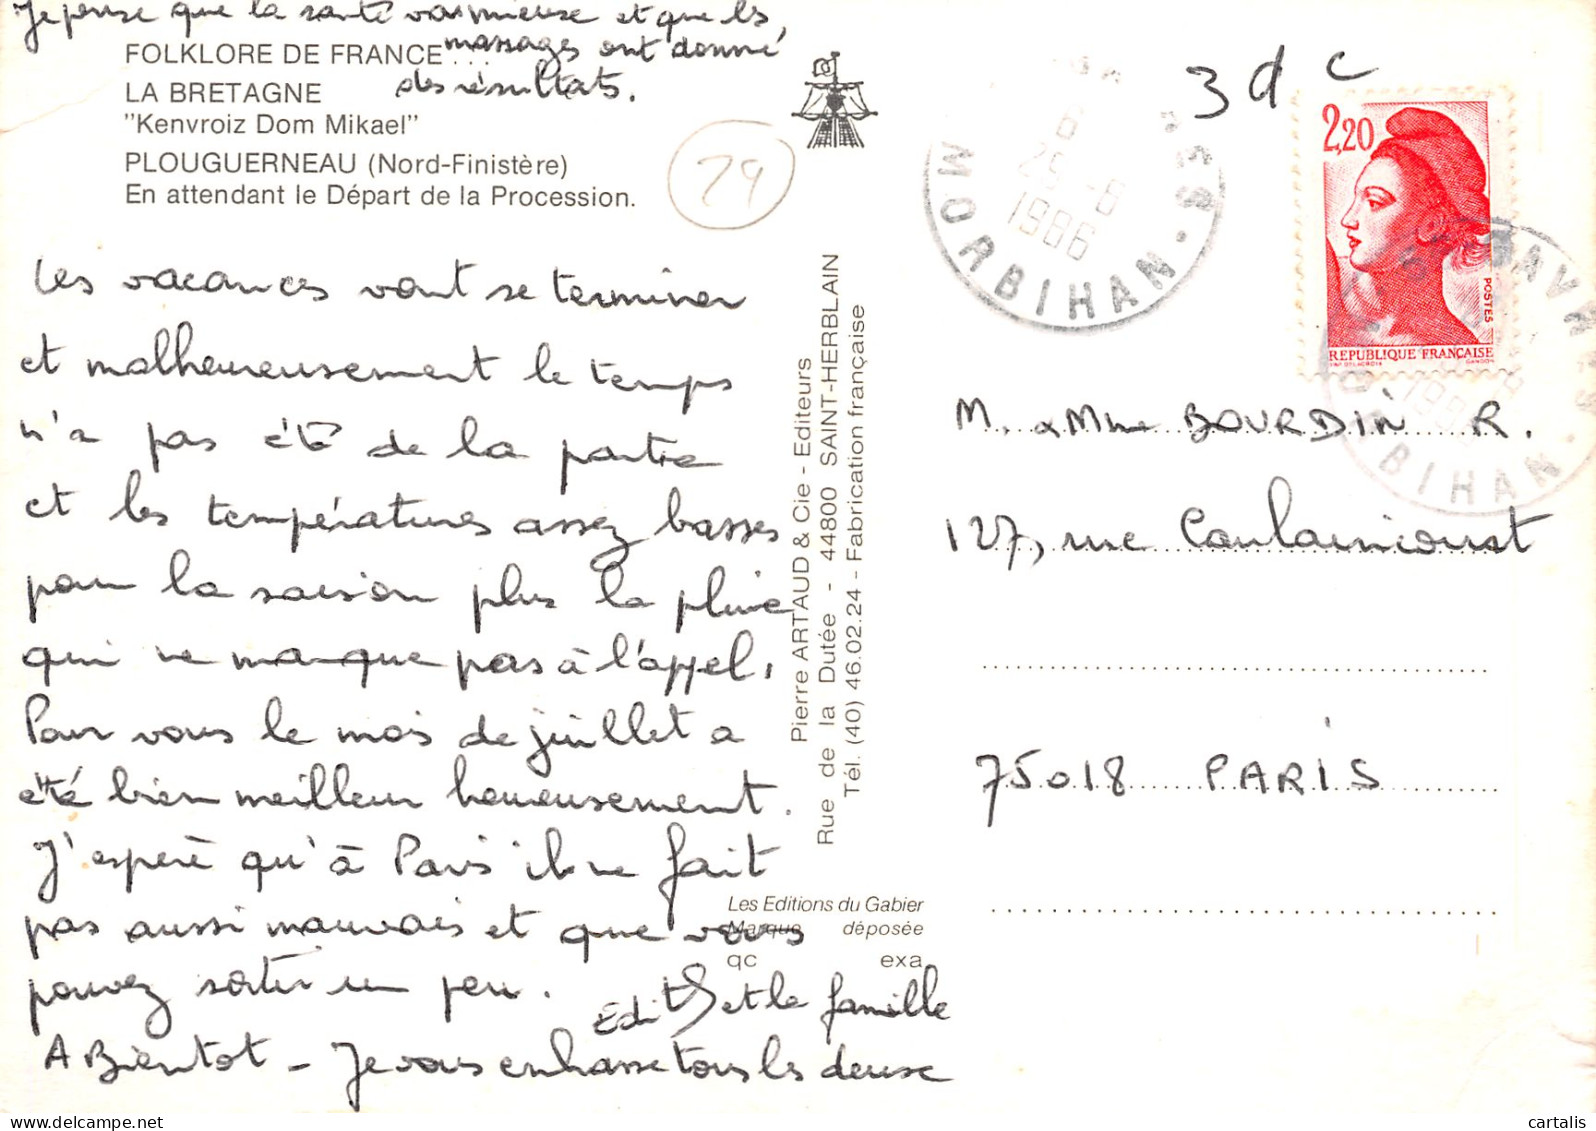 Je pense que la santé va mieux et que les
massages ont donné
des résultats.
FOLKLORE DE FRANCE...
LA BRETAGNE
"Kenvroiz Dom Mikael"
PLOUGUERNEAU (Nord-Finistère)
En attendant le Départ de la Procession.
29
Les vacances vont se terminer
et malheureusement le temps
n'a pas été de la partie
et les températures assez basses
pour la saison plus la pluie
qui ne manque pas à l'appel.
Pour vous le mois de juillet a
été bien meilleur heureusement.
J'espère qu'à Paris il ne fait
pas aussi mauvais et que vous
pouvez sortir un peu.
Edith et la famille
A Bientot - Je vous embrasse tous les deux
Pierre ARTAUD & Cie - Editeurs
Rue de la Dutée - 44800 SAINT-HERBLAIN
Tél. (40) 46.02.24 - Fabrication française
Les Editions du Gabier
Marque déposée
qc exa
3 d c
25 -8
1986
MORBIHAN
2,20
POSTES
REPUBLIQUE FRANÇAISE
GANDON
MORBIHAN
M. & Mme BOURDIN R.
127, rue Caulaincourt
75018 PARIS
cartalis
www.delcampe.net